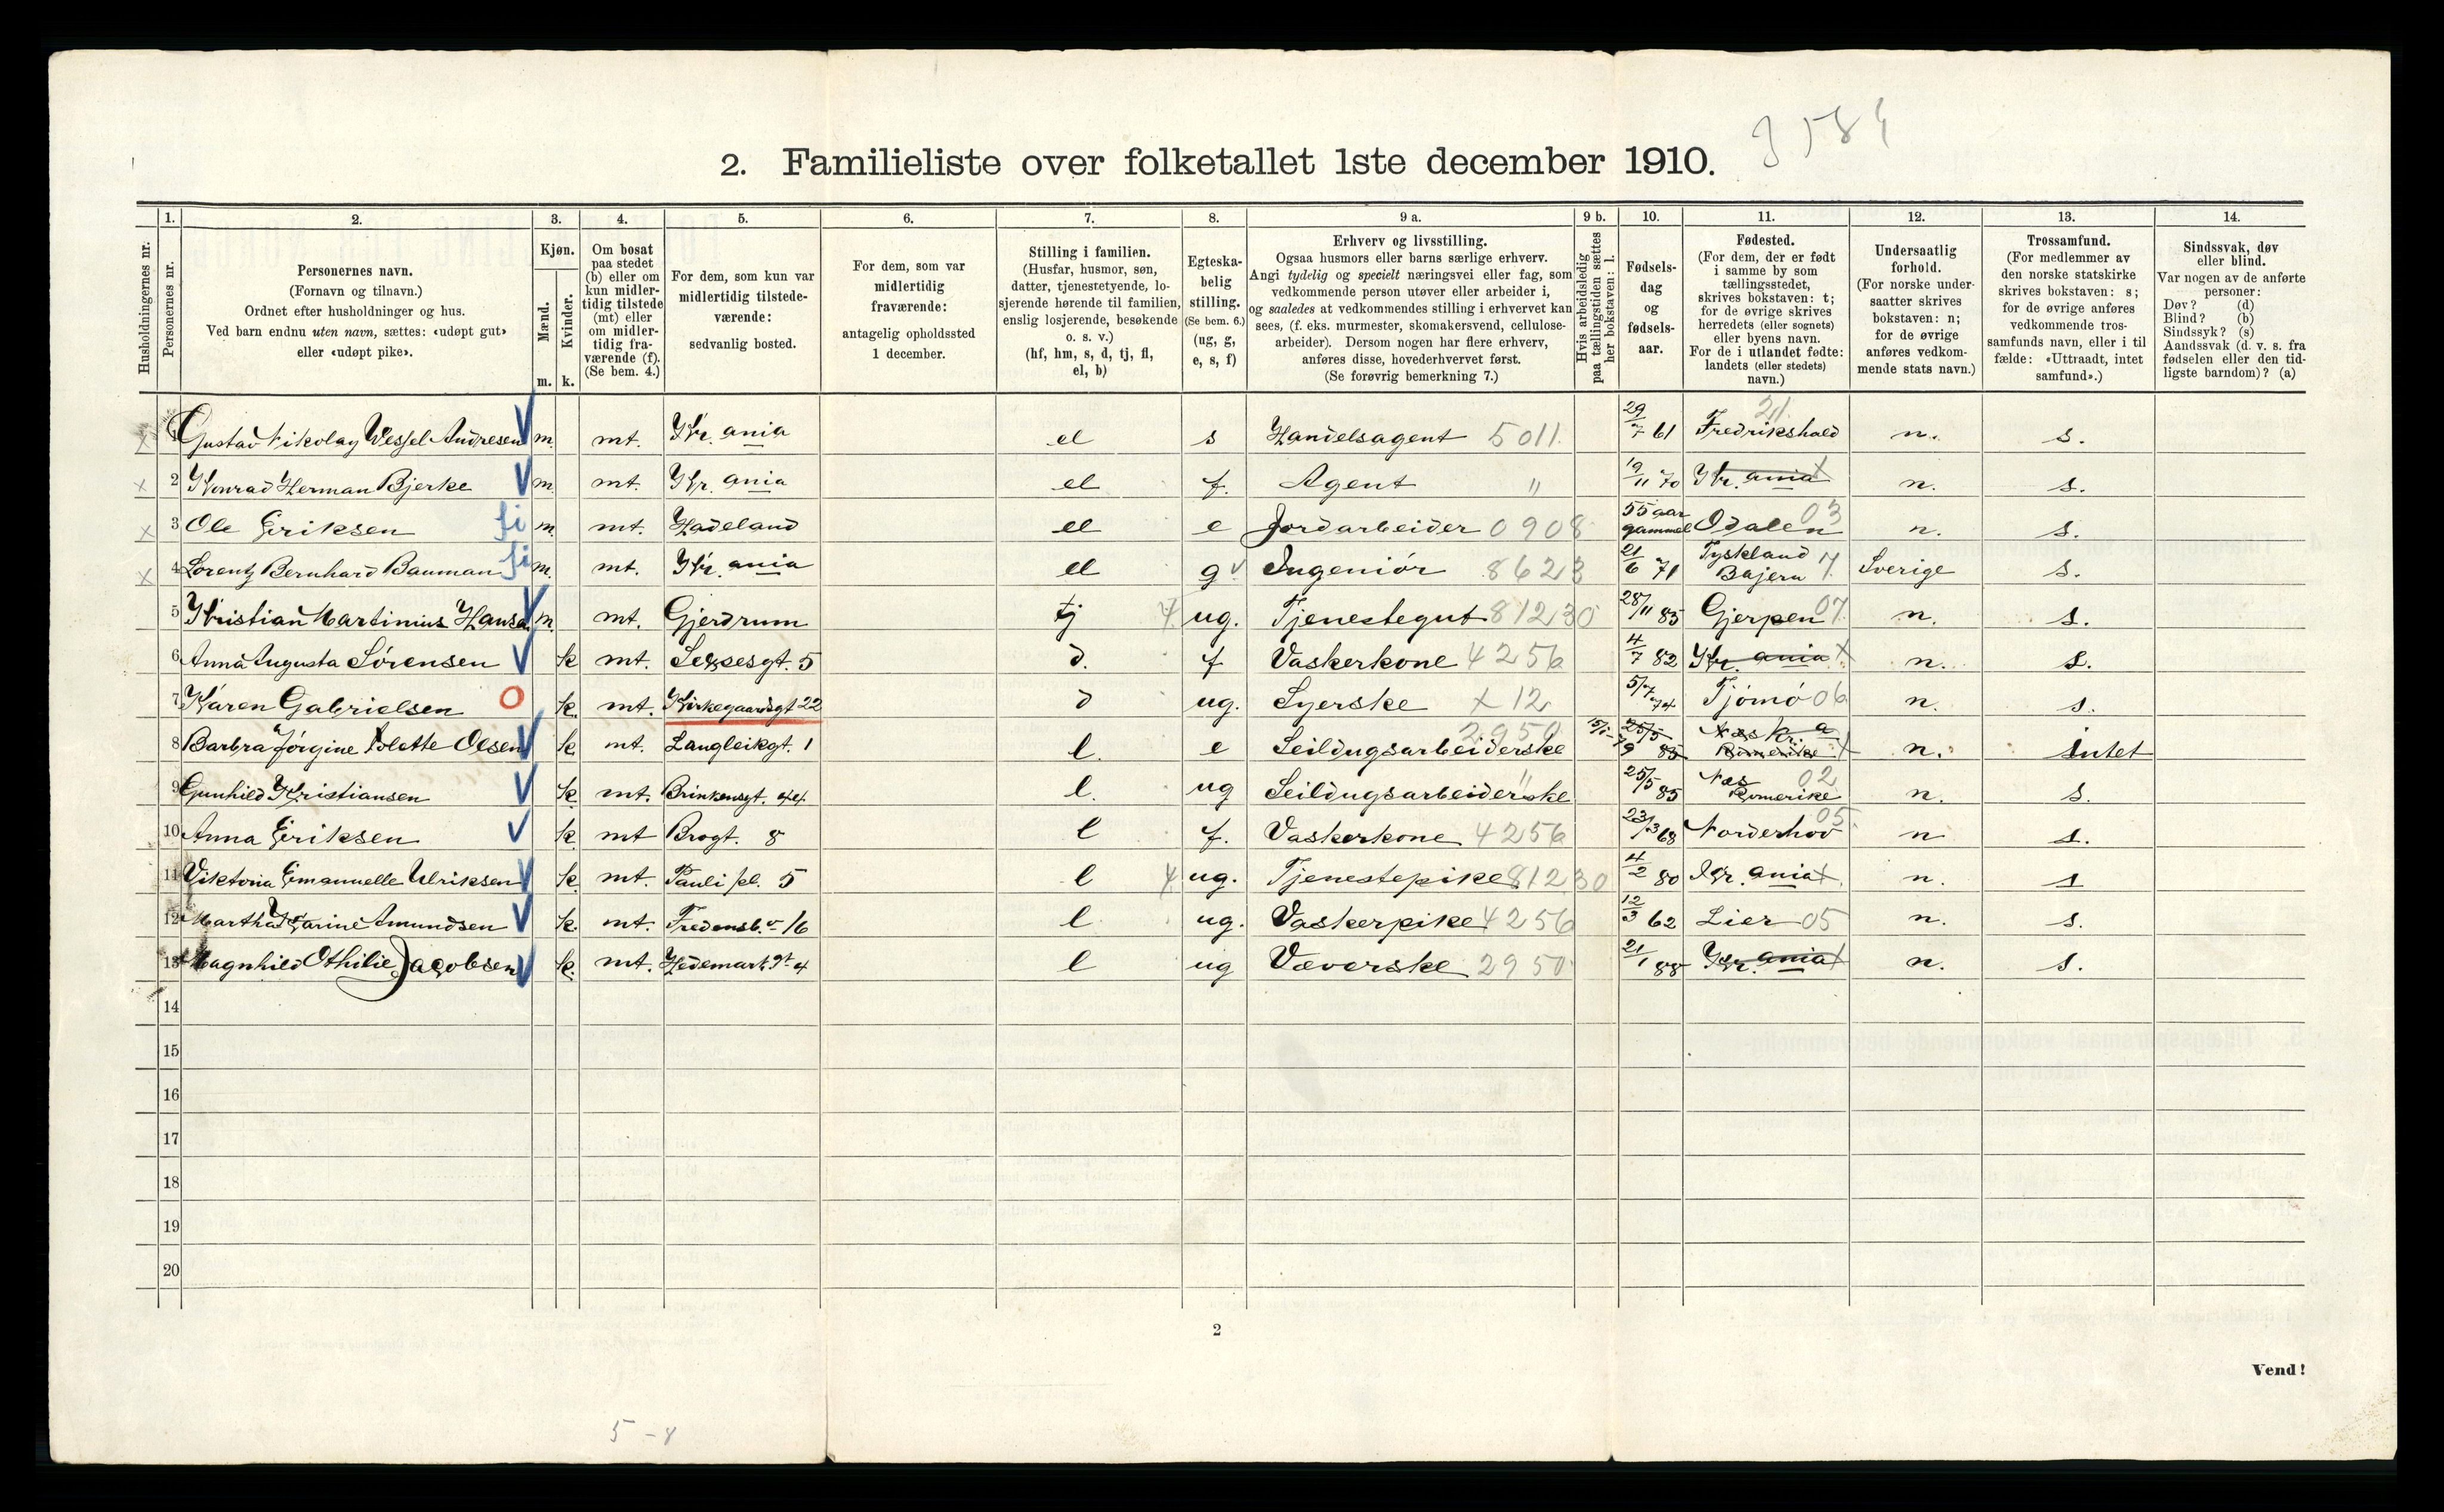 3584
2. Familieliste over folketallet 1ste december 1910.
Husholdningernes nr.
1.
Personernes nr.
2.
Personernes navn.
(Fornavn og tilnavn.)
Ordnet efter husholdninger og hus.
Ved barn endnu uten navn, sættes: «udøpt gut»
eller «udøpt pike».
3.
Kjøn.
Mænd.
Kvinder.
m. k.
4.
Om bosat
paa stedet
(b) eller om
kun midler-
tidig tilstede
(mt) eller
om midler-
tidig fra-
værende (f).
(Se bem. 4.)
5.
For dem, som kun var
midlertidig tilstede-
værende:
sedvanlig bosted.
6.
For dem, som var
midlertidig
fraværende:
antagelig opholdssted
1 december.
7.
Stilling i familien.
(Husfar, husmor, søn,
datter, tjenestetyende, lo-
sjerende hørende til familien,
enslig losjerende, besøkende
o. s. v.)
(hf, hm, s, d, tj, fl,
el, b)
8.
Egteska-
belig
stilling.
(Se bem. 6.)
(ug, g,
e, s, f)
9 a.
Erhverv og livsstilling.
Ogsaa husmors eller barns særlige erhverv.
Angi tydelig og specielt næringsvei eller fag, som
vedkommende person utøver eller arbeider i,
og saaledes at vedkommendes stilling i erhvervet kan
sees, (f. eks. murmester, skomakersvend, cellulose-
arbeider). Dersom nogen har flere erhverv,
anføres disse, hovederhvervet først.
(Se forøvrig bemerkning 7.)
9 b.
Hvis arbeidsledig
paa tællingstiden sættes
her bokstaven: l.
10.
Fødsels-
dag
og
fødsels-
aar.
11.
Fødested.
(For dem, der er født
i samme by som
tællingsstedet,
skrives bokstaven: t;
for de øvrige skrives
herredets (eller sognets)
eller byens navn.
For de i utlandet fødte:
landets (eller stedets)
navn.)
12.
Undersaatlig
forhold.
(For norske under-
saatter skrives
bokstaven: n;
for de øvrige
anføres vedkom-
mende stats navn.)
13.
Trossamfund.
(For medlemmer av
den norske statskirke
skrives bokstaven: s;
for de øvrige anføres
vedkommende tros-
samfunds navn, eller i til
fælde: «Uttraadt, intet
samfund».)
14.
Sindssvak, døv
eller blind.
Var nogen av de anførte
personer:
Døv? (d)
Blind? (b)
Sindssyk? (s)
Aandssvak (d. v. s. fra
fødselen eller den tid-
ligste barndom)? (a)
x Gustav Nikolay Wessel Andresen m. mt. Kr. ania el s Handelsagent 5011. 29/7 61 Fredrikshald 211. n. s.
x 2 Konrad Herman Bjerke m. mt. Kr. ania el f. Agent " 19/11 70 Kr. ania x n. s.
x 3 Ole Eriksen fi m. mt. Hadeland el e Jordarbeider 0908 55 aar gammel Odalen 03 n. s.
x 4 Lorentz Bernhard Bauman fi m. mt. Kr. ania el g v Ingeniör 8623 21/6 71 Tyskland Bajern 7. Sverige s.
5 Kristian Martinius Hansen m. mt. Gjerdrum tj 4 ug. Tjenestegut 81230 28/11 85 Gjerpen 07. n. s.
6 Anna Augusta Sörensen k mt. Sexesgt. 5 d. f Vaskerkone 4256 4/7 82 Kr. ania x n. s.
7 Karen Gabrielsen O k. mt. Kirkegaardsgt 22 d ug. Syerske x 12 5/7 74 Tjömö 06 n. s.
8 Barbra Jörgine Nolette Olsen k mt. Langleikgt. 1 l. e Seildugsarbeiderske 2950 25/5 85 Næs Kr. a Romerike x n. intet
9 Gunhild Kristiansen k mt. Brinkensgt. 44 l. ug Seildugsarbeiderske " 25/5 85 Næs Romerike 02 n. s.
10 Anna Eriksen k. mt Brogt. 8 l f. Vaskerkone 4256 23/3 68 Norderhov 05 n s.
11 Viktoria Emanuelle Ulriksen k. mt. Pauli pl. 5 l 4 ug. Tjenestepike 81230 4/2 80 Kr. ania x n. s
12 Martha Karine Amundsen k. mt. Fredensb. v 16 l ug. Vaskerpike 4256 12/3 62 Lier 05 n. s.
13 Magnhild Othilie Jacobsen k. mt. Hedemark. gt 4 l ug Væverske 2950 21/1 88 Kr. ania x n. s.
14
15
16
17
18
19
20
2
Vend!
5-8